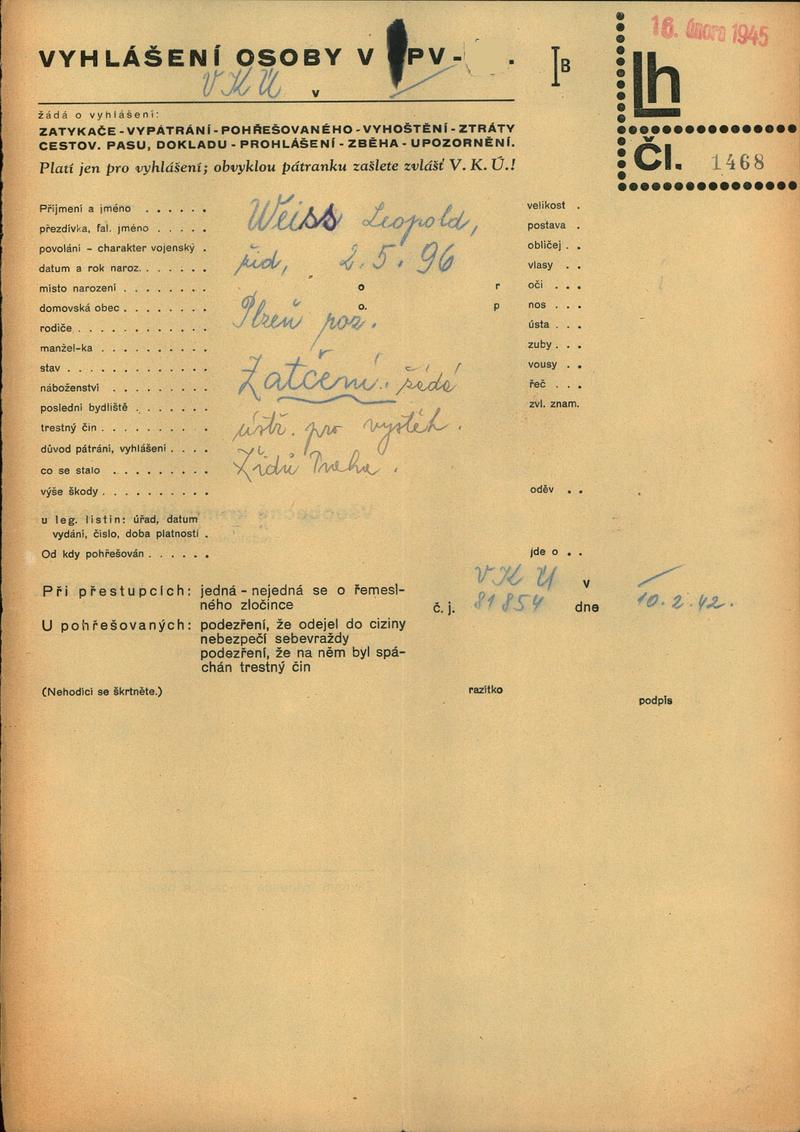 16. února 1945
VYHLÁŠENÍ OSOBY V PV- .
IB
Lh
VKÚ v
Čl. 1468
žádá o vyhlášení:
ZATYKAČE - VYPÁTRÁNÍ - POHŘEŠOVANÉHO - VYHOŠTĚNÍ - ZTRÁTY
CESTOV. PASU, DOKLADU - PROHLÁŠENÍ - ZBĚHA - UPOZORNĚNÍ.
Platí jen pro vyhlášení; obvyklou pátranku zašlete zvlášť V. K. Ú.!
Příjmení a jméno . . . . . .
přezdívka, fal. jméno . . . . .
povolání – charakter vojenský .
datum a rok naroz. . . . . . .
místo narození . . . . . . . .
domovská obec . . . . . . . .
rodiče . . . . . . . . . . . .
manžel-ka . . . . . . . . . .
stav . . . . . . . . . . . . .
náboženství . . . . . . . . .
poslední bydliště . . . . . . .
trestný čin . . . . . . . . . .
důvod pátrání, vyhlášení . . . .
co se stalo . . . . . . . . .
výše škody . . . . . . . . . .
Weiss Leopold,
žid, 2.5.96
o r
o. p
Plzeň poz.
Zatčení. žádá
ústř. pro vystěh.
Židů Praha.
velikost .
postava .
obličej . .
vlasy . .
oči . . .
nos . . .
ústa . . .
zuby . . .
vousy . .
řeč . . .
zvl. znam.
oděv . .
u leg. listin: úřad, datum
vydání, číslo, doba platnosti .
Od kdy pohřešován . . . . . .
jde o . .
VKÚ v
Při přestupcích: jedná - nejedná se o řemesl-
ného zločince
č. j. 81854 dne 10.2.42.
U pohřešovaných: podezření, že odejel do ciziny
nebezpečí sebevraždy
podezření, že na něm byl spá-
chán trestný čin
(Nehodící se škrtněte.)
razítko
podpis